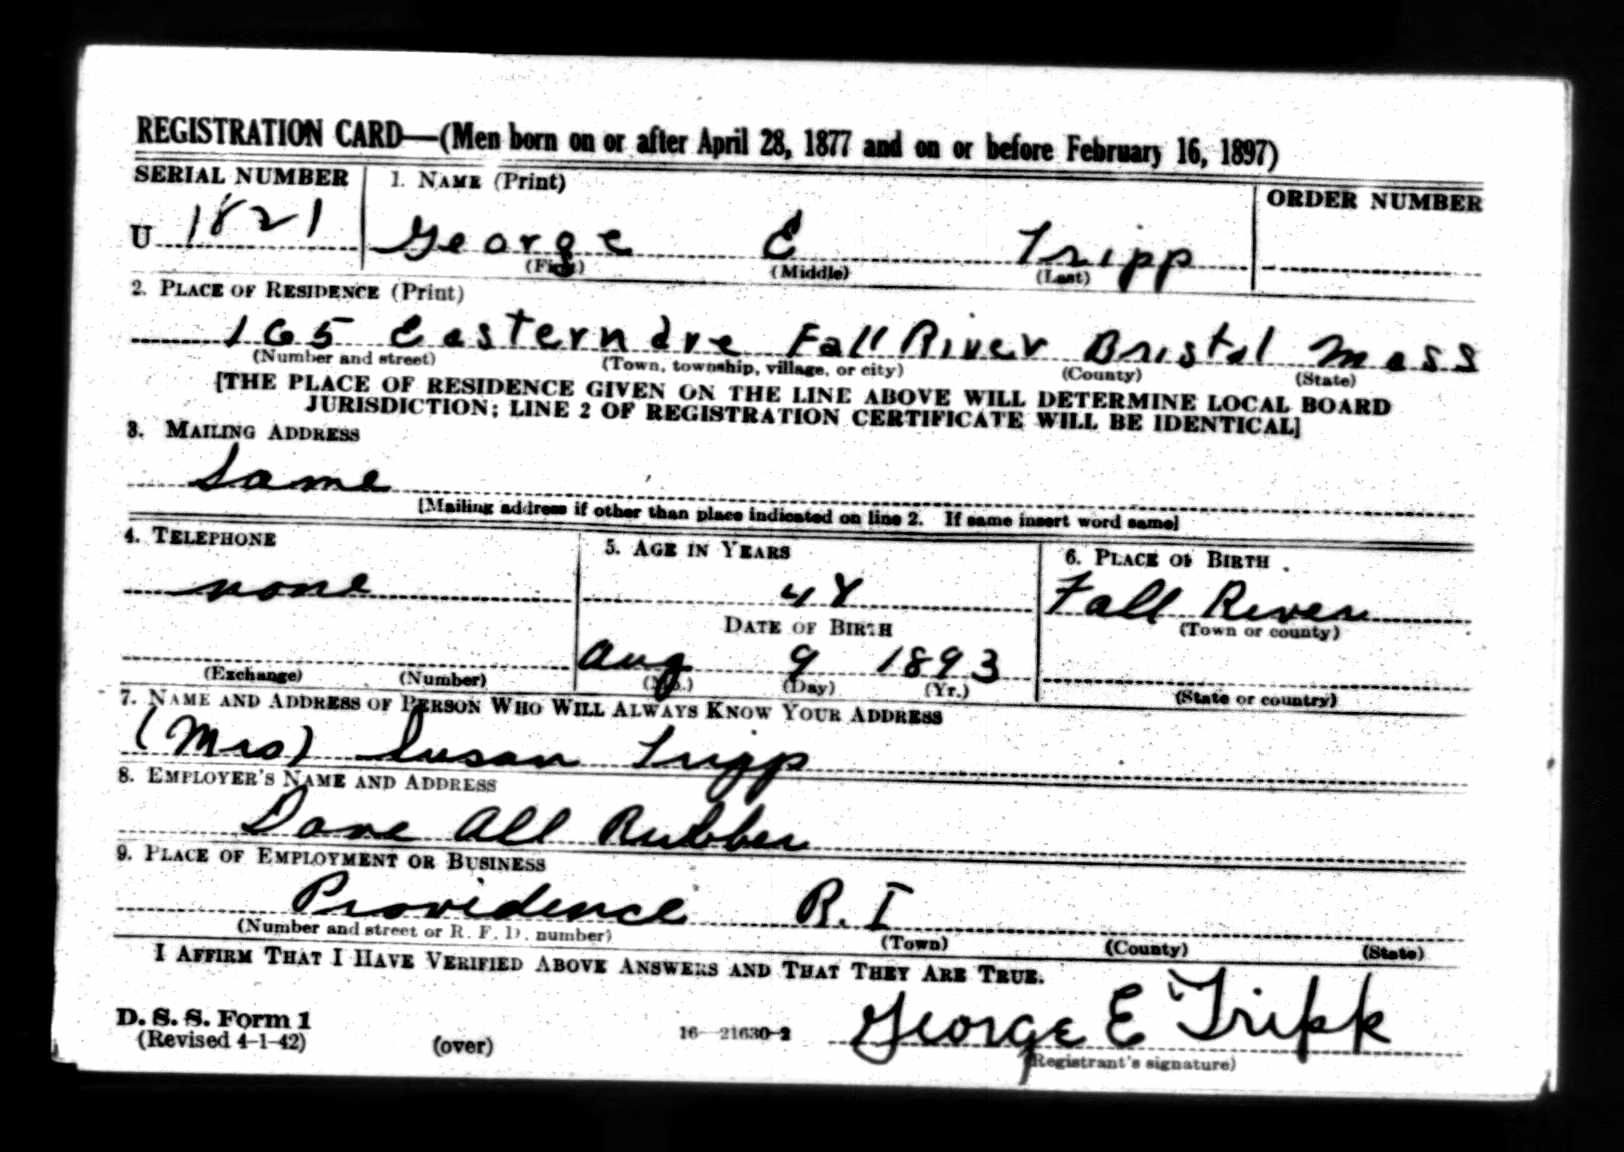 REGISTRATION CARD—(Men born on or after April 28, 1877 and on or before February 16, 1897)
SERIAL NUMBER 1. NAME (Print) ORDER NUMBER
U 1821 George E Tripp
(First) (Middle) (Last)
2. PLACE OF RESIDENCE (Print)
165 Eastern ave Fall River Bristol Mass
(Number and street) (Town, township, village, or city) (County) (State)
[THE PLACE OF RESIDENCE GIVEN ON THE LINE ABOVE WILL DETERMINE LOCAL BOARD
JURISDICTION; LINE 2 OF REGISTRATION CERTIFICATE WILL BE IDENTICAL]
3. MAILING ADDRESS
Same
[Mailing address if other than place indicated on line 2. If same insert word same]
4. TELEPHONE 5. AGE IN YEARS 6. PLACE OF BIRTH
none 48 Fall River
DATE OF BIRTH (Town or county)
Aug 9 1893
(Exchange) (Number) (Mo.) (Day) (Yr.) (State or country)
7. NAME AND ADDRESS OF PERSON WHO WILL ALWAYS KNOW YOUR ADDRESS
(Mrs) Susan Tripp
8. EMPLOYER'S NAME AND ADDRESS
All Rubber
9. PLACE OF EMPLOYMENT OR BUSINESS
Providence R.I
(Number and street or R. F. D. number) (Town) (County) (State)
I AFFIRM THAT I HAVE VERIFIED ABOVE ANSWERS AND THAT THEY ARE TRUE.
D. S. S. Form 1 George E Tripp
(Revised 4-1-42) (over) 16—21630-2 (Registrant's signature)